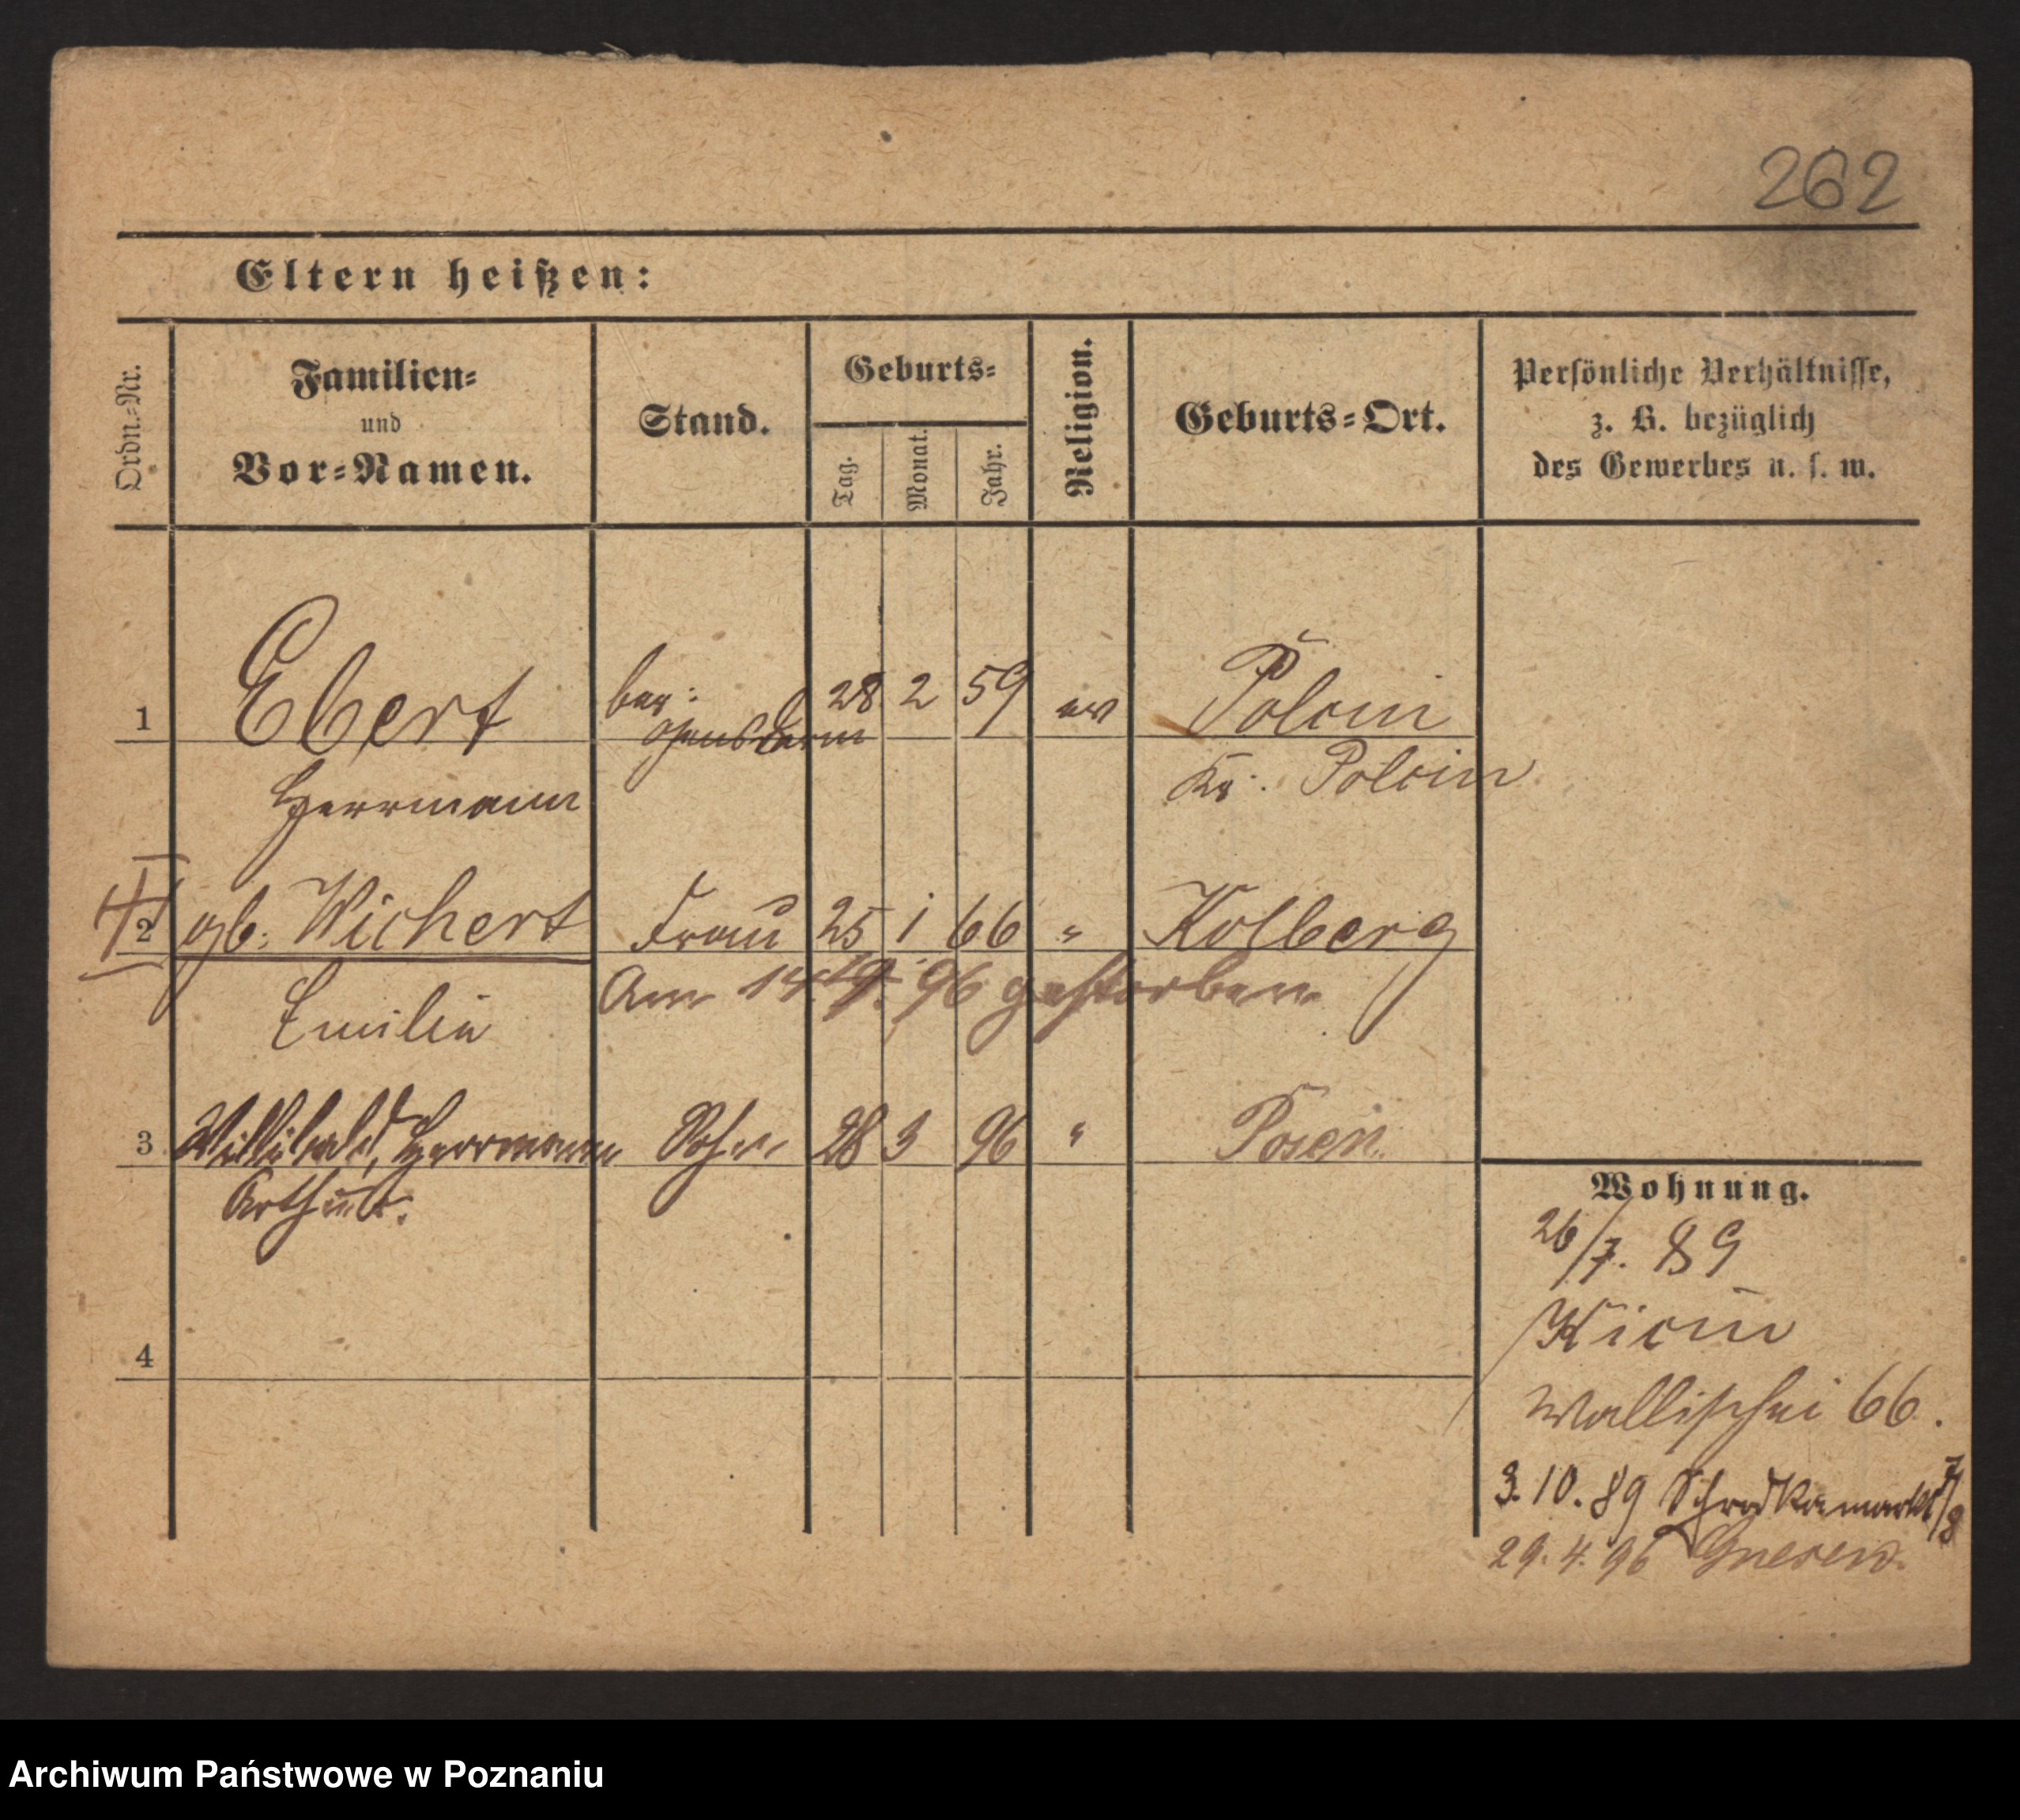 262
Eltern heißen:
Ordn.-Nr.
Familien-
und
Vor-Namen.
Stand.
Geburts-
Tag.
Monat.
Jahr.
Religion.
Geburts-Ort.
Persönliche Verhältnisse,
z. B. bezüglich
des Gewerbes u. s. w.
1 Ebert ber: 28 2 59 ev Polcin
Gensdarm
Herrmann Kr. Polcin
2 gb. Wichert Frau 25 1 66 " Kolberg
Am 14. 96 gestorben
Emilie
3 Willibald, Herrmann Sohn 28 3 96 " Posen.
Arthur.
4
Wohnung.
26/7. 89
Kicin
Wallischei 66.
3. 10. 89 Schrodkamarkt 7/8
29. 4. 96 Gnesen.
Archiwum Państwowe w Poznaniu